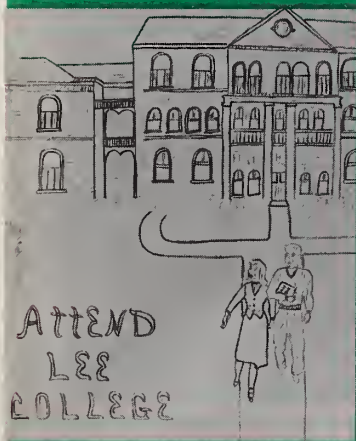 ATTEND
LEE
COLLEGE